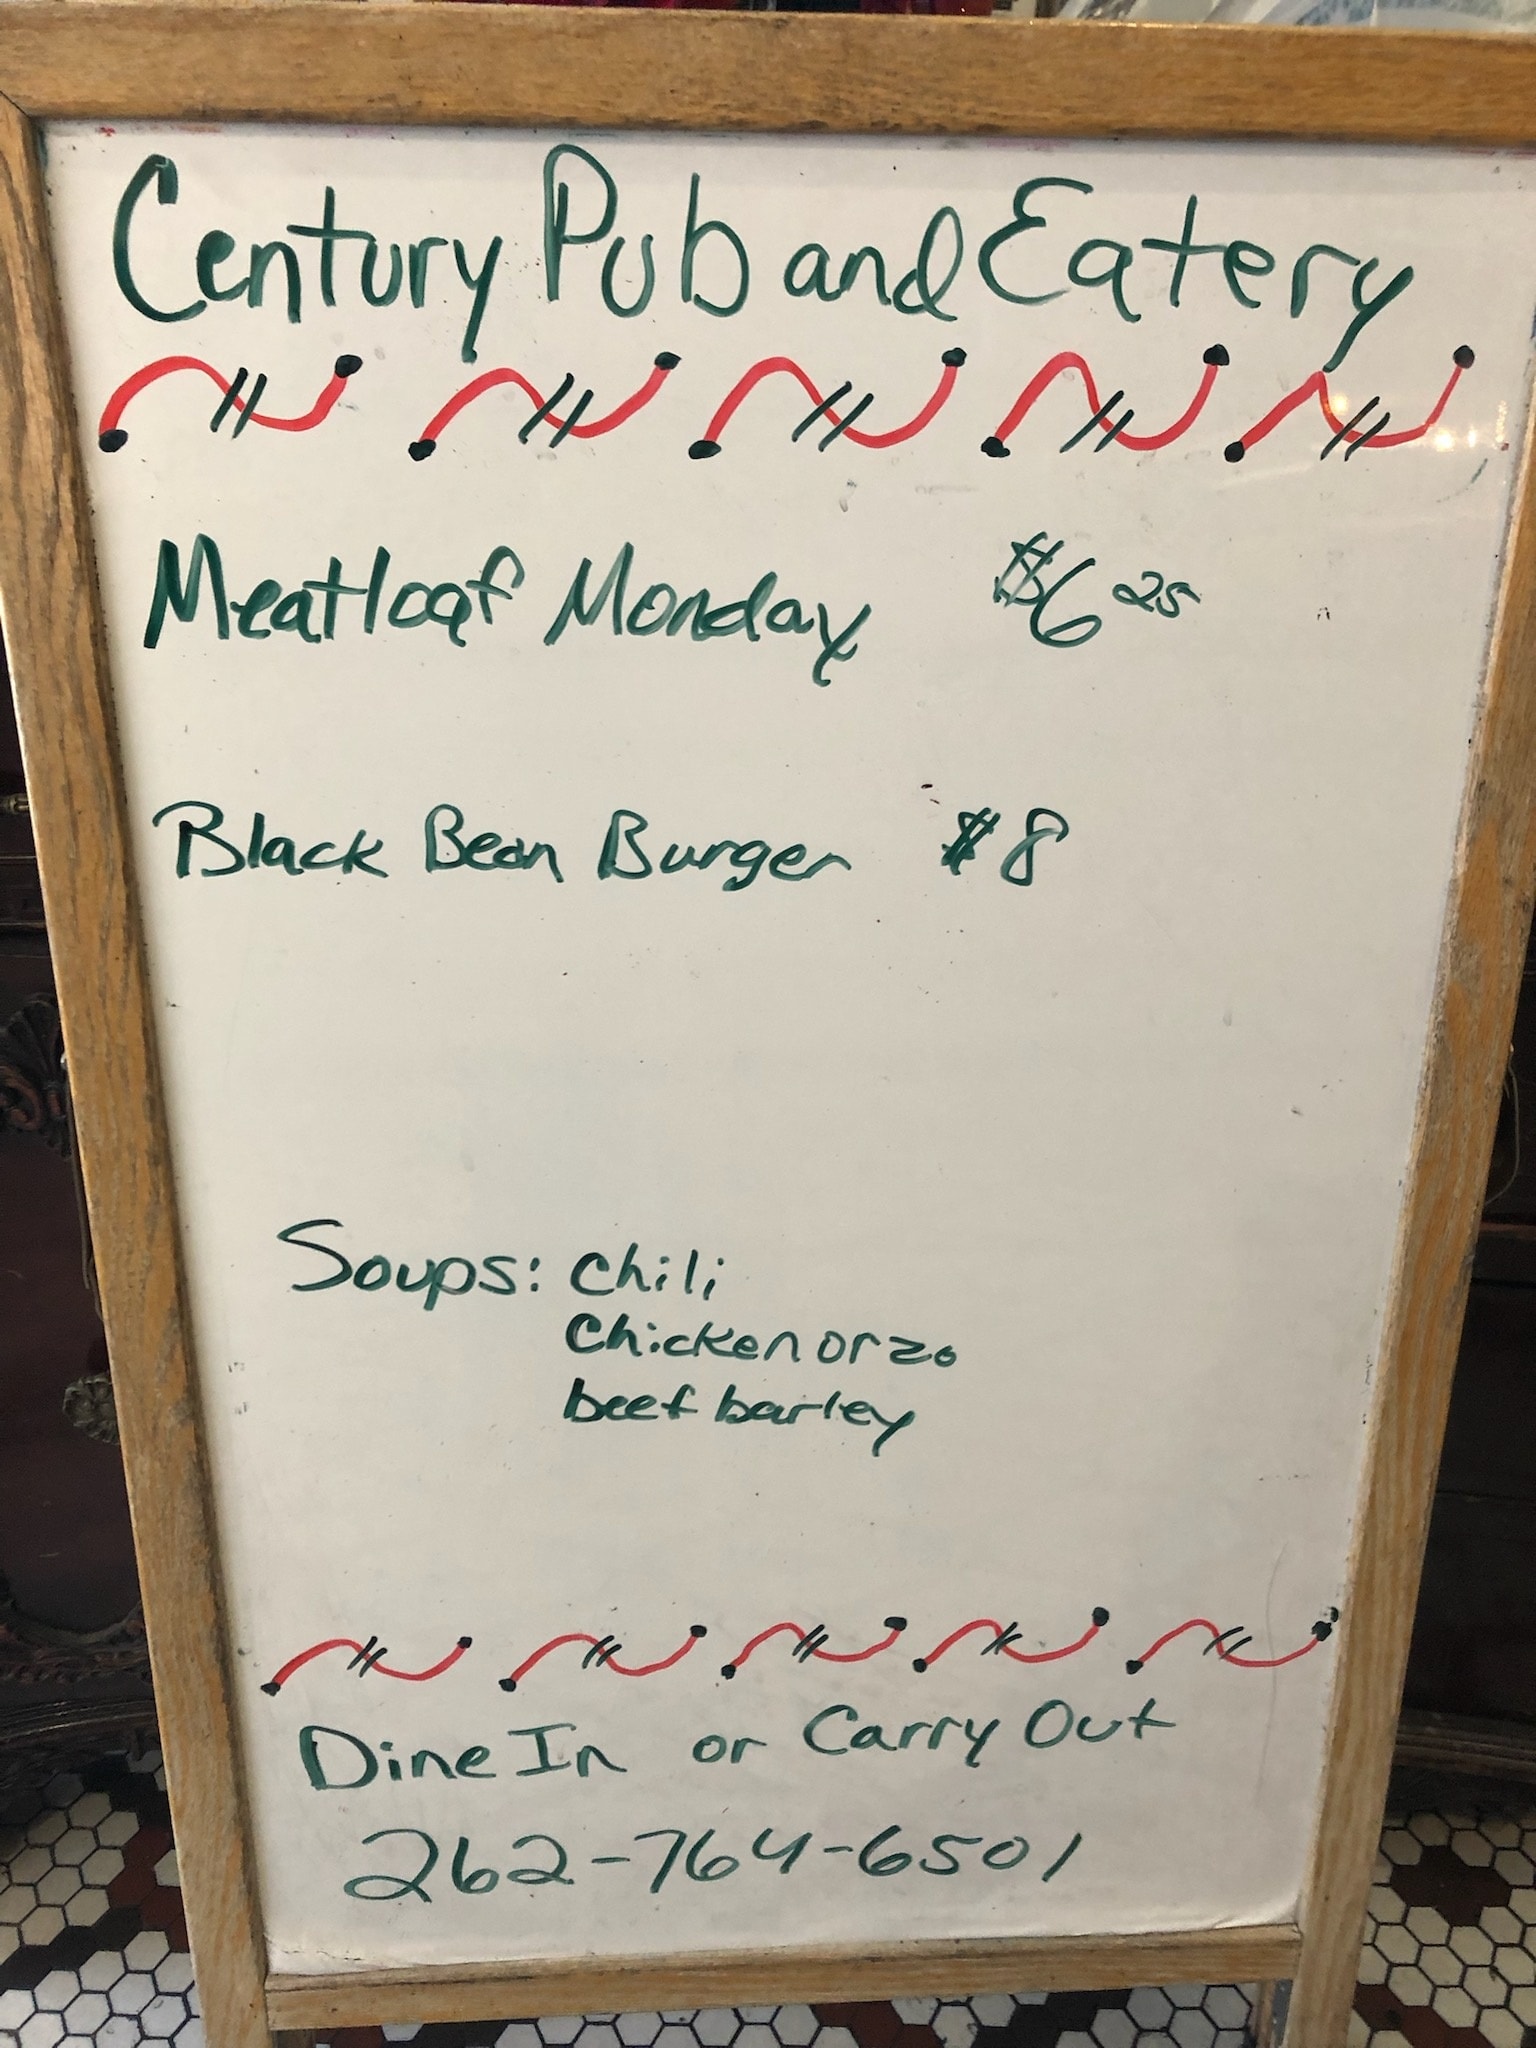 Century Pub and Eatery
Meatloaf Monday $6 25
Black Bean Burger $8
Soups: Chili
Chicken orzo
beef barley
Dine In or Carry Out
262-764-6501